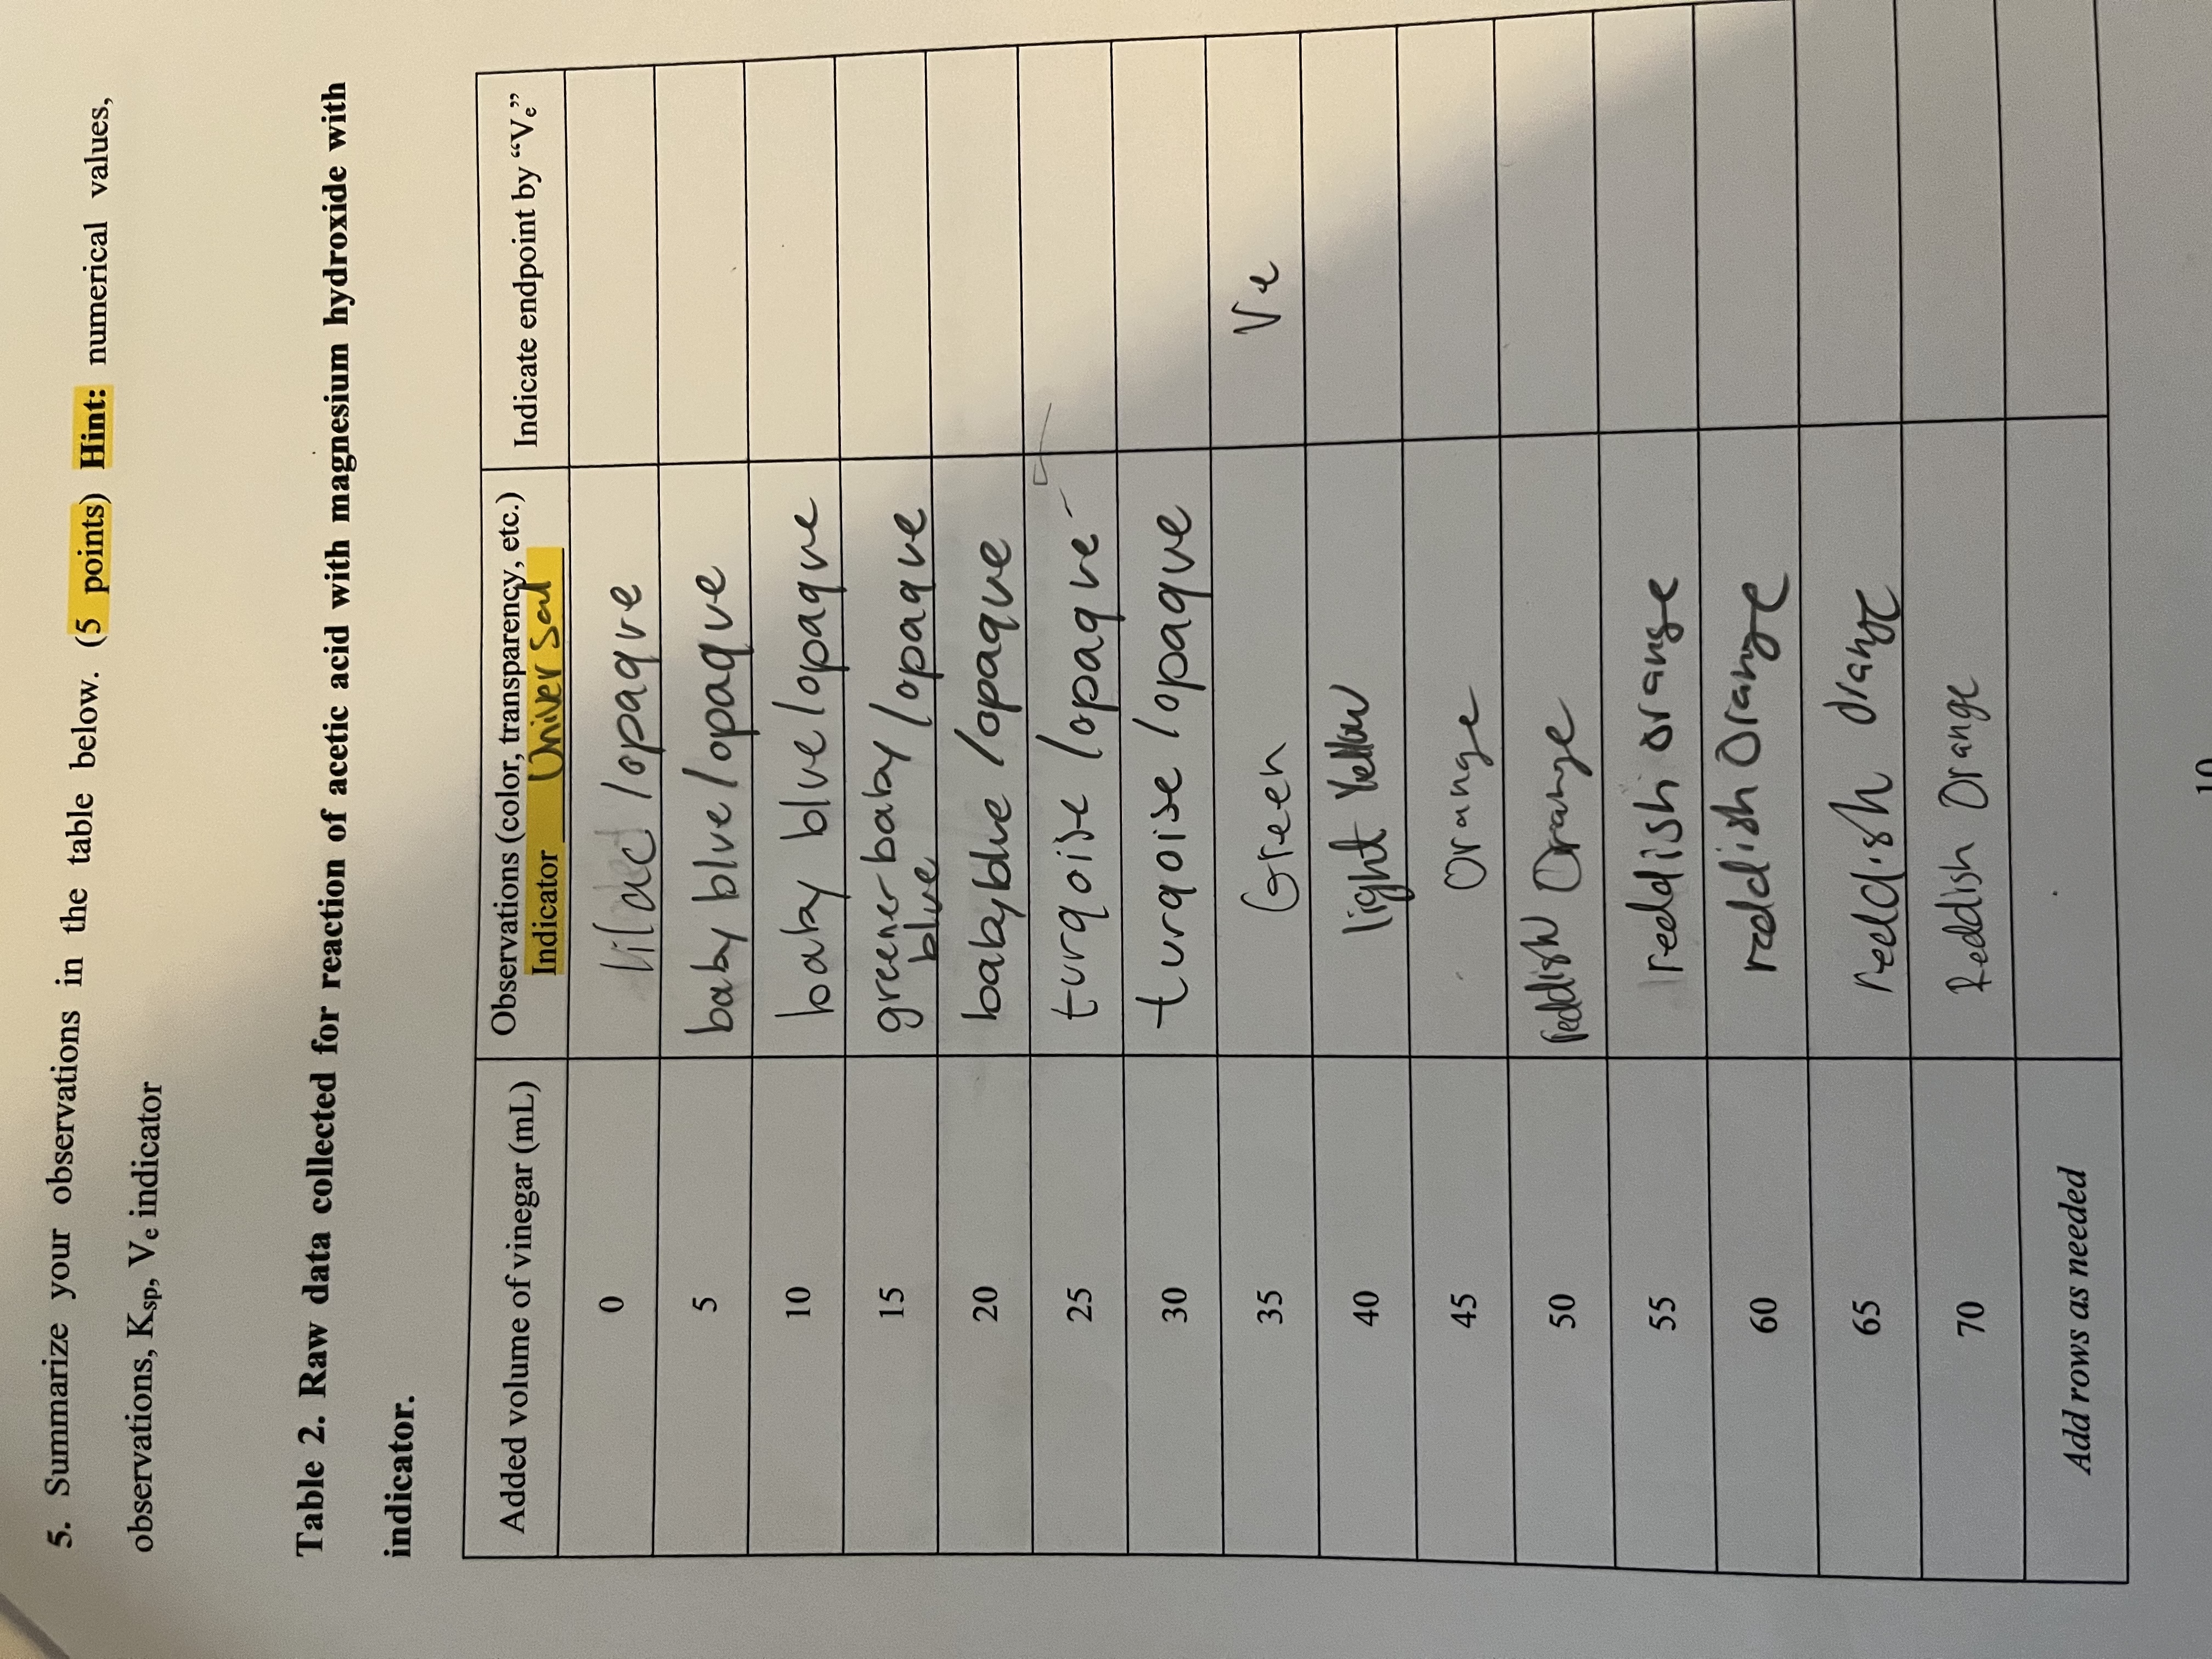 5. Summarize your observations in the table below. (5 points) Hint: numerical values,
observations, Ksp, Ve indicator
Table 2. Raw data collected for reaction of acetic acid with magnesium hydroxide with
indicator.
Added volume of vinegar (mL)
Observations (color, transparency, etc.)
Indicator Universal
Indicate endpoint by “Ve”
0 lilac /opaque
5 baby blue/opaque
10 baby blue/opaque
15 greener baby /opaque
blue
20 baby blue /opaque
25 turqoise /opaque
30 turqoise /opaque
35 Green Ve
40 light Yellow
45 Orange
50 reddish Orange
55 reddish orange
60 reddish Orange
65 reddish Orange
70 Reddish Orange
Add rows as needed